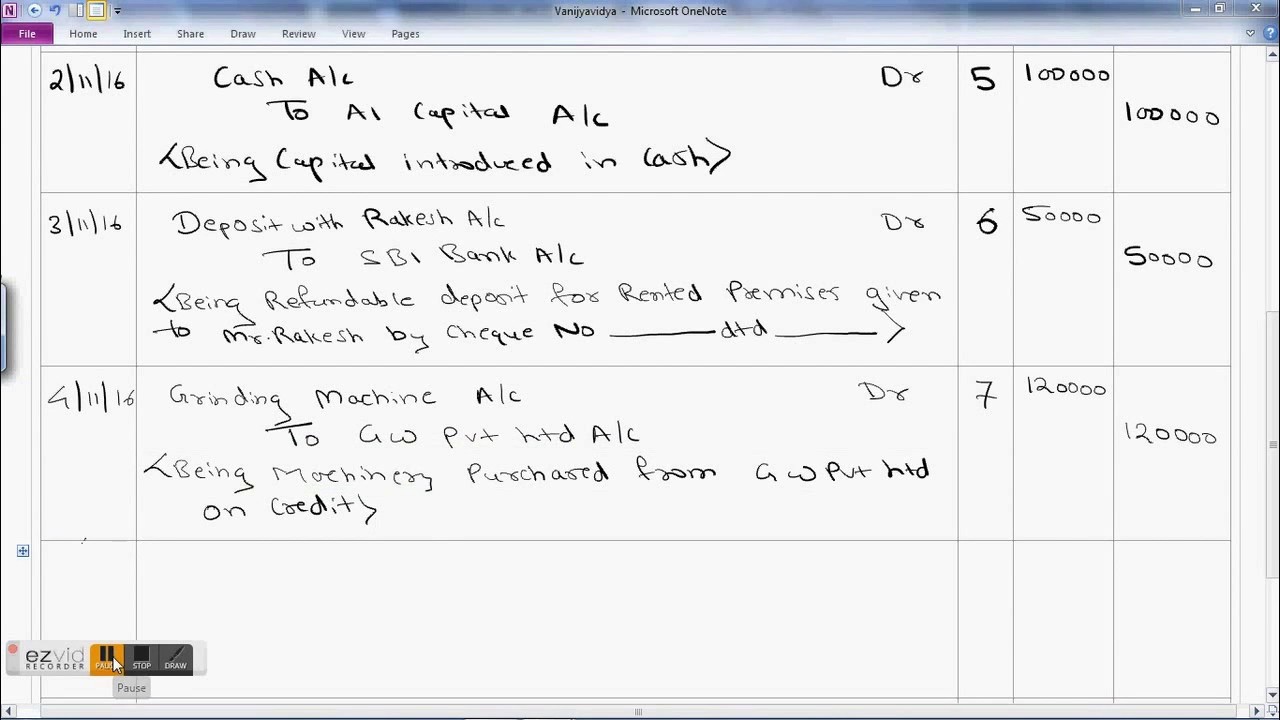 Vanijyavidya - Microsoft OneNote
File Home Insert Share Draw Review View Pages
2/11/16 Cash A/c Dr 5 100000
To A1 Capital A/c 100000
<Being Capital introduced in Cash>
3/11/16 Deposit with Rakesh A/c Dr 6 50000
To SBI Bank A/c 50000
<Being Refundable deposit for Rented Premises given
to Mr. Rakesh by Cheque No ______ dtd ______>
4/11/16 Grinding Machine A/c Dr 7 120000
To GW Pvt Ltd A/c 120000
<Being Machinery Purchased from GW Pvt Ltd
on Credit>
ezvid
RECORDER
PAUSE STOP DRAW
Pause